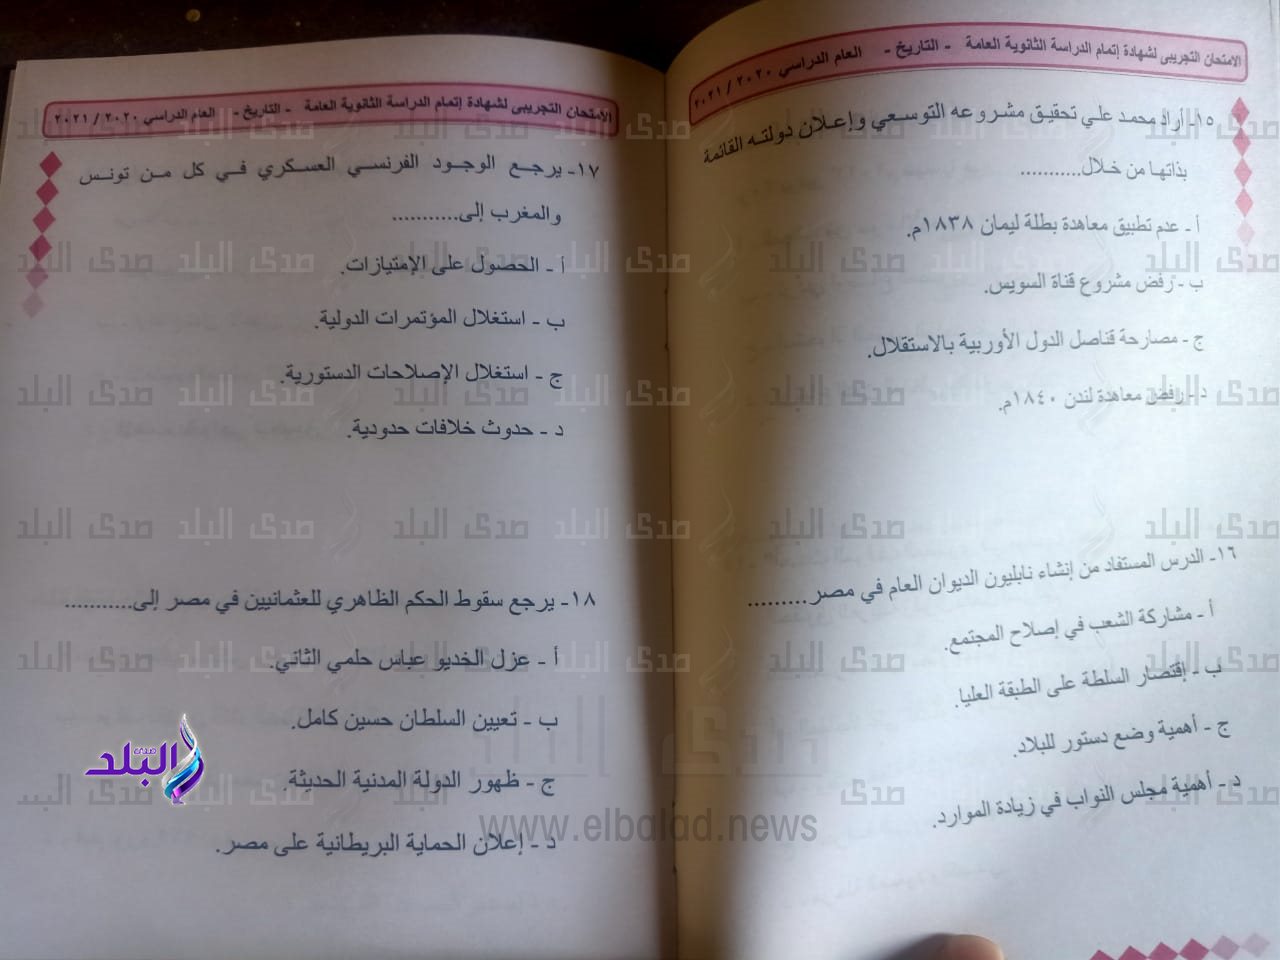 الامتحان التجريبى لشهادة إتمام الدراسة الثانوية العامة - التاريخ - العام الدراسي ٢٠٢٠ / ٢٠٢١
١٥- أراد محمد علي تحقيق مشروعه التوسعي وإعلان دولته القائمة
بذاتها من خلال...........
أ - عدم تطبيق معاهدة بطلة ليمان ١٨٣٨م.
ب - رفض مشروع قناة السويس.
ج - مصارحة قناصل الدول الأوربية بالاستقلال.
د - رفض معاهدة لندن ١٨٤٠م.
١٦- الدرس المستفاد من إنشاء نابليون الديوان العام في مصر.........
أ - مشاركة الشعب في إصلاح المجتمع.
ب - إقتصار السلطة على الطبقة العليا.
ج - أهمية وضع دستور للبلاد.
د - أهمية مجلس النواب في زيادة الموارد.
الامتحان التجريبى لشهادة إتمام الدراسة الثانوية العامة - التاريخ - العام الدراسي ٢٠٢٠ / ٢٠٢١
١٧- يرجع الوجود الفرنسي العسكري في كل من تونس
والمغرب إلى...........
أ - الحصول على الإمتيازات.
ب - استغلال المؤتمرات الدولية.
ج - استغلال الإصلاحات الدستورية.
د - حدوث خلافات حدودية.
١٨- يرجع سقوط الحكم الظاهري للعثمانيين في مصر إلى...........
أ - عزل الخديو عباس حلمي الثاني.
ب - تعيين السلطان حسين كامل.
ج - ظهور الدولة المدنية الحديثة.
د - إعلان الحماية البريطانية على مصر.
صدى البلد
www.elbalad.news